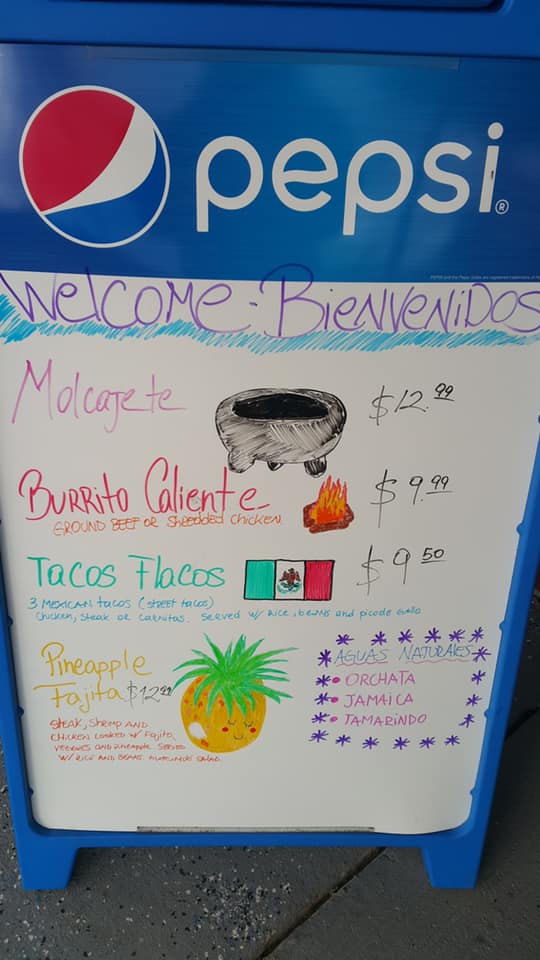 pepsi®
Welcome - Bienvenidos
Molcajete $12.99
Burrito Caliente $9.99
GROUND BEEF or shredded chicken
Tacos Flacos $9.50
3 MEXICAN tacos (street tacos)
Chicken, Steak or Carnitas. Served w/ Rice, beans and picode gallo
Pineapple
Fajita $12.99
Steak, Shrimp AND
Chicken cooked w/ Fajita
veggies and pineapple. Served
w/ Rice and Beans. Salad.
AGUAS NATURALES
• ORCHATA
• JAMAICA
• TAMARINDO